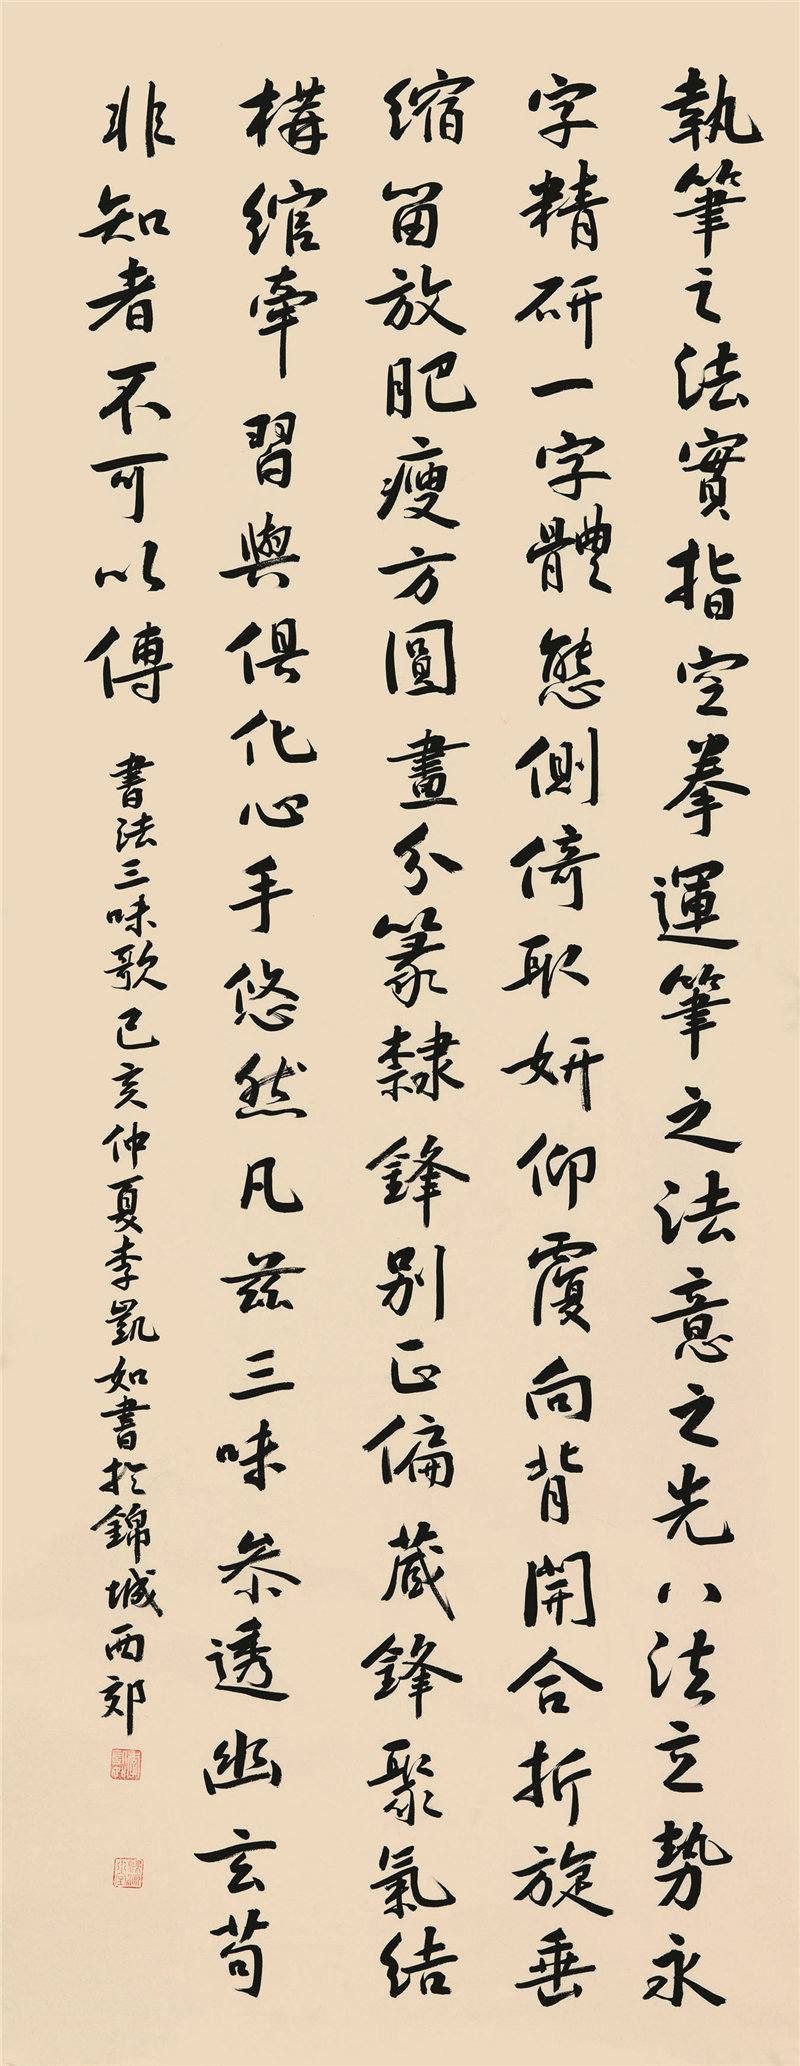 執筆之法實指空拳運筆之法意之先八法立勢永
字精研一字體態側倚取妍仰覆向背開合折旋垂
缩留放肥瘦方圓畫分篆隸鋒别正偏藏鋒聚氣结
構綰牽習與俱化心手悠然凡兹三味参透幽玄苟
非知者不可以傳
書法三味歌己亥仲夏李凱如書於錦城西郊